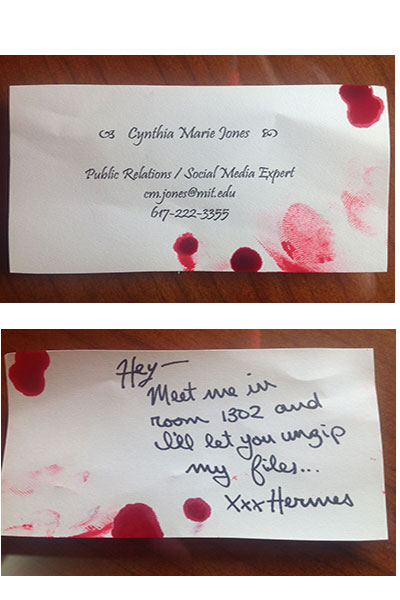 Cynthia Marie Jones
Public Relations / Social Media Expert
cm.jones@mit.edu
617-222-3355
Hey—
Meet me in
room 1302 and
I'll let you unzip
my files...
xxx Hermes